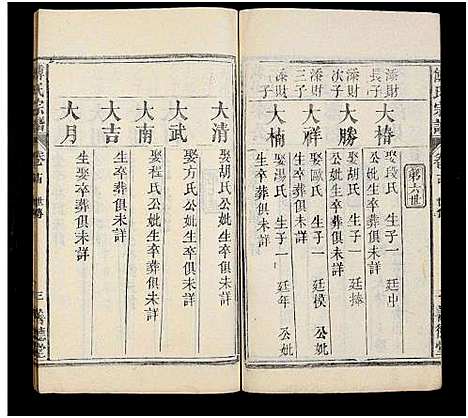 氏宗譜
第六世
添財長子
大椿
娶段氏 生子一 廷中
公妣生卒葬俱未詳
添財次子
大勝
娶胡氏 生子一 廷捧
公妣生卒葬俱未詳
添財三子
大祥
娶歐氏 生子一 廷模 公妣
生卒葬俱未詳
大楠
娶湯氏 生子一 廷年 公妣
生卒葬俱未詳
大清
娶胡氏公妣生卒葬俱未詳
大武
娶方氏公妣生卒葬俱未詳
大南
娶程氏公妣生卒葬俱未詳
大吉
生娶卒葬俱未詳
大月
生娶卒葬俱未詳
氏宗譜
三 善德堂